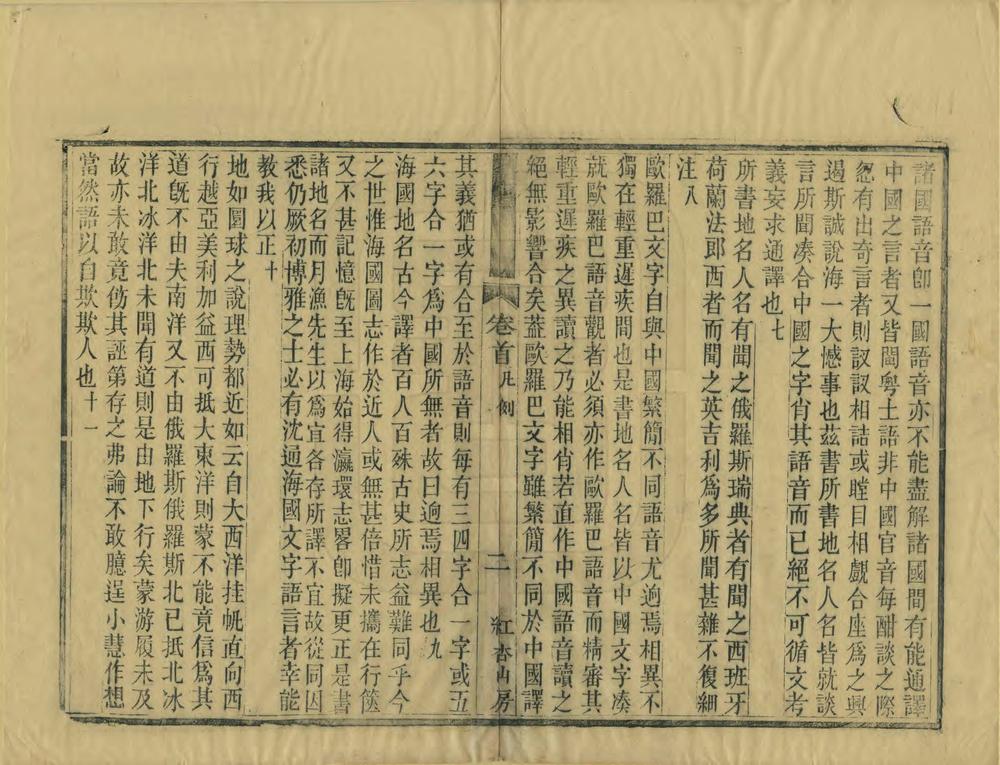 諸國語音卽一國語音亦不能盡解諸國間有能通譯
中國之言者又皆閩粵土語非中國官音每酣談之際
忽有出奇言者則訍訍相詰或瞠目相覷合座爲之興
遏斯誠說海一大憾事也茲書所書地名人名皆就談
言所聞湊合中國之字肖其語音而已絕不可循文考
義妄求通譯也七
所書地名人名有聞之俄羅斯瑞典者有聞之西班牙
荷蘭法郎西者而聞之英吉利爲多所聞甚雜不復細
注八
歐羅巴文字自與中國繁簡不同語音尤逈焉相異不
獨在輕重遲疾間也是書地名人名皆以中國文字湊
就歐羅巴語音觀者必須亦作歐羅巴語音而精審其
輕重遲疾之異讀之乃能相肖若直作中國語音讀之
絕無影響合矣葢歐羅巴文字雖繁簡不同於中國譯
卷首 凡例 二 紅杏山房
其義猶或有合至於語音則每有三四字合一字或五
六字合一字爲中國所無者故曰逈焉相異也九
海國地名古今譯者百人百殊古史所志益難同乎今
之世惟海國圖志作於近人或無甚倍惜未攜在行篋
又不甚記憶旣至上海始得瀛環志畧卽擬更正是書
諸地名而月漁先生以爲宜各存所譯不宜故從同因
悉仍厥初博雅之士必有沈通海國文字語言者幸能
教我以正十
地如圜球之說理勢都近如云自大西洋挂帆直向西
行越亞美利加益西可抵大東洋則蒙不能竟信爲其
道旣不由夫南洋又不由俄羅斯俄羅斯北已抵北冰
洋北冰洋北未聞有道則是由地下行矣蒙游履未及
故亦未敢竟仿其誣第存之弗論不敢臆逞小慧作想
當然語以自欺欺人也十一